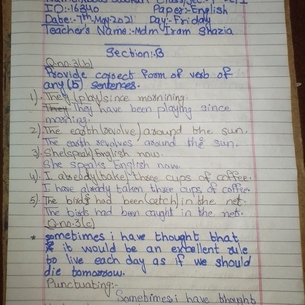 ID:-16840 Paper:-English
Date:-7th May 2021 Day:-Friday
Teacher's Name:-Mdm Iram Shazia
Section:B
Q.no.3(b)
Provide correct form of verb of
any (5) sentences.
1) They (play) since morning.
They have been playing since
morning.
2) The earth (revolve) around the sun.
The earth revolves around the sun.
3) She (speak) English now.
She speaks English now.
4) I already (take) three cups of coffee.
I have already taken three cups of coffee.
5) The birds had been (catch) in the net.
The birds had been caught in the net.
Q.no.3(c)
sometimes i have thought that
it would be an excellent rule
to live each day as if we should
die tomorrow.
Punctuating:-
Sometimes i have thought